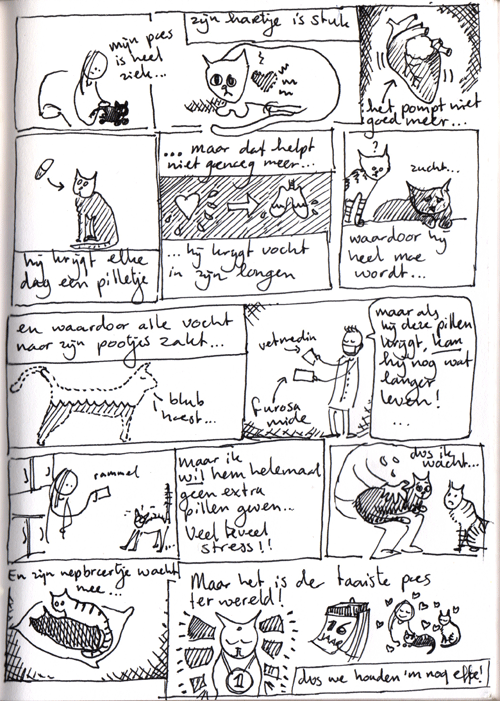 mijn poes
is heel
ziek...
zijn hartje is stuk
het pompt niet
goed meer...
hij krijgt elke
dag een pilletje
... maar dat helpt
niet genoeg meer...
... hij krijgt vocht
in zijn longen
?
zucht...
waardoor hij
heel moe
wordt...
en waardoor alle vocht
naar zijn pootjes zakt...
blub
hoest...
vetmedin
furosa
mide
maar als
hij deze pillen
krijgt, kan
hij nog wat
langer
leven!
...
rammel
Maar ik
wil hem helemaal
geen extra
pillen geven...
Veel teveel
stress!!
dus ik
wacht...
En zijn nepbroertje wacht
mee...
Maar het is de taaiste poes
ter wereld!
1
16
dus we houden 'm nog effe!